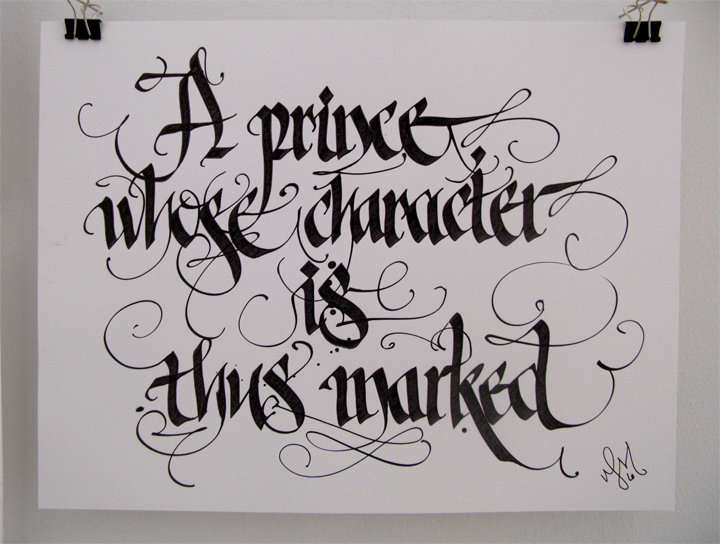 A prince
whose character
is
thus marked